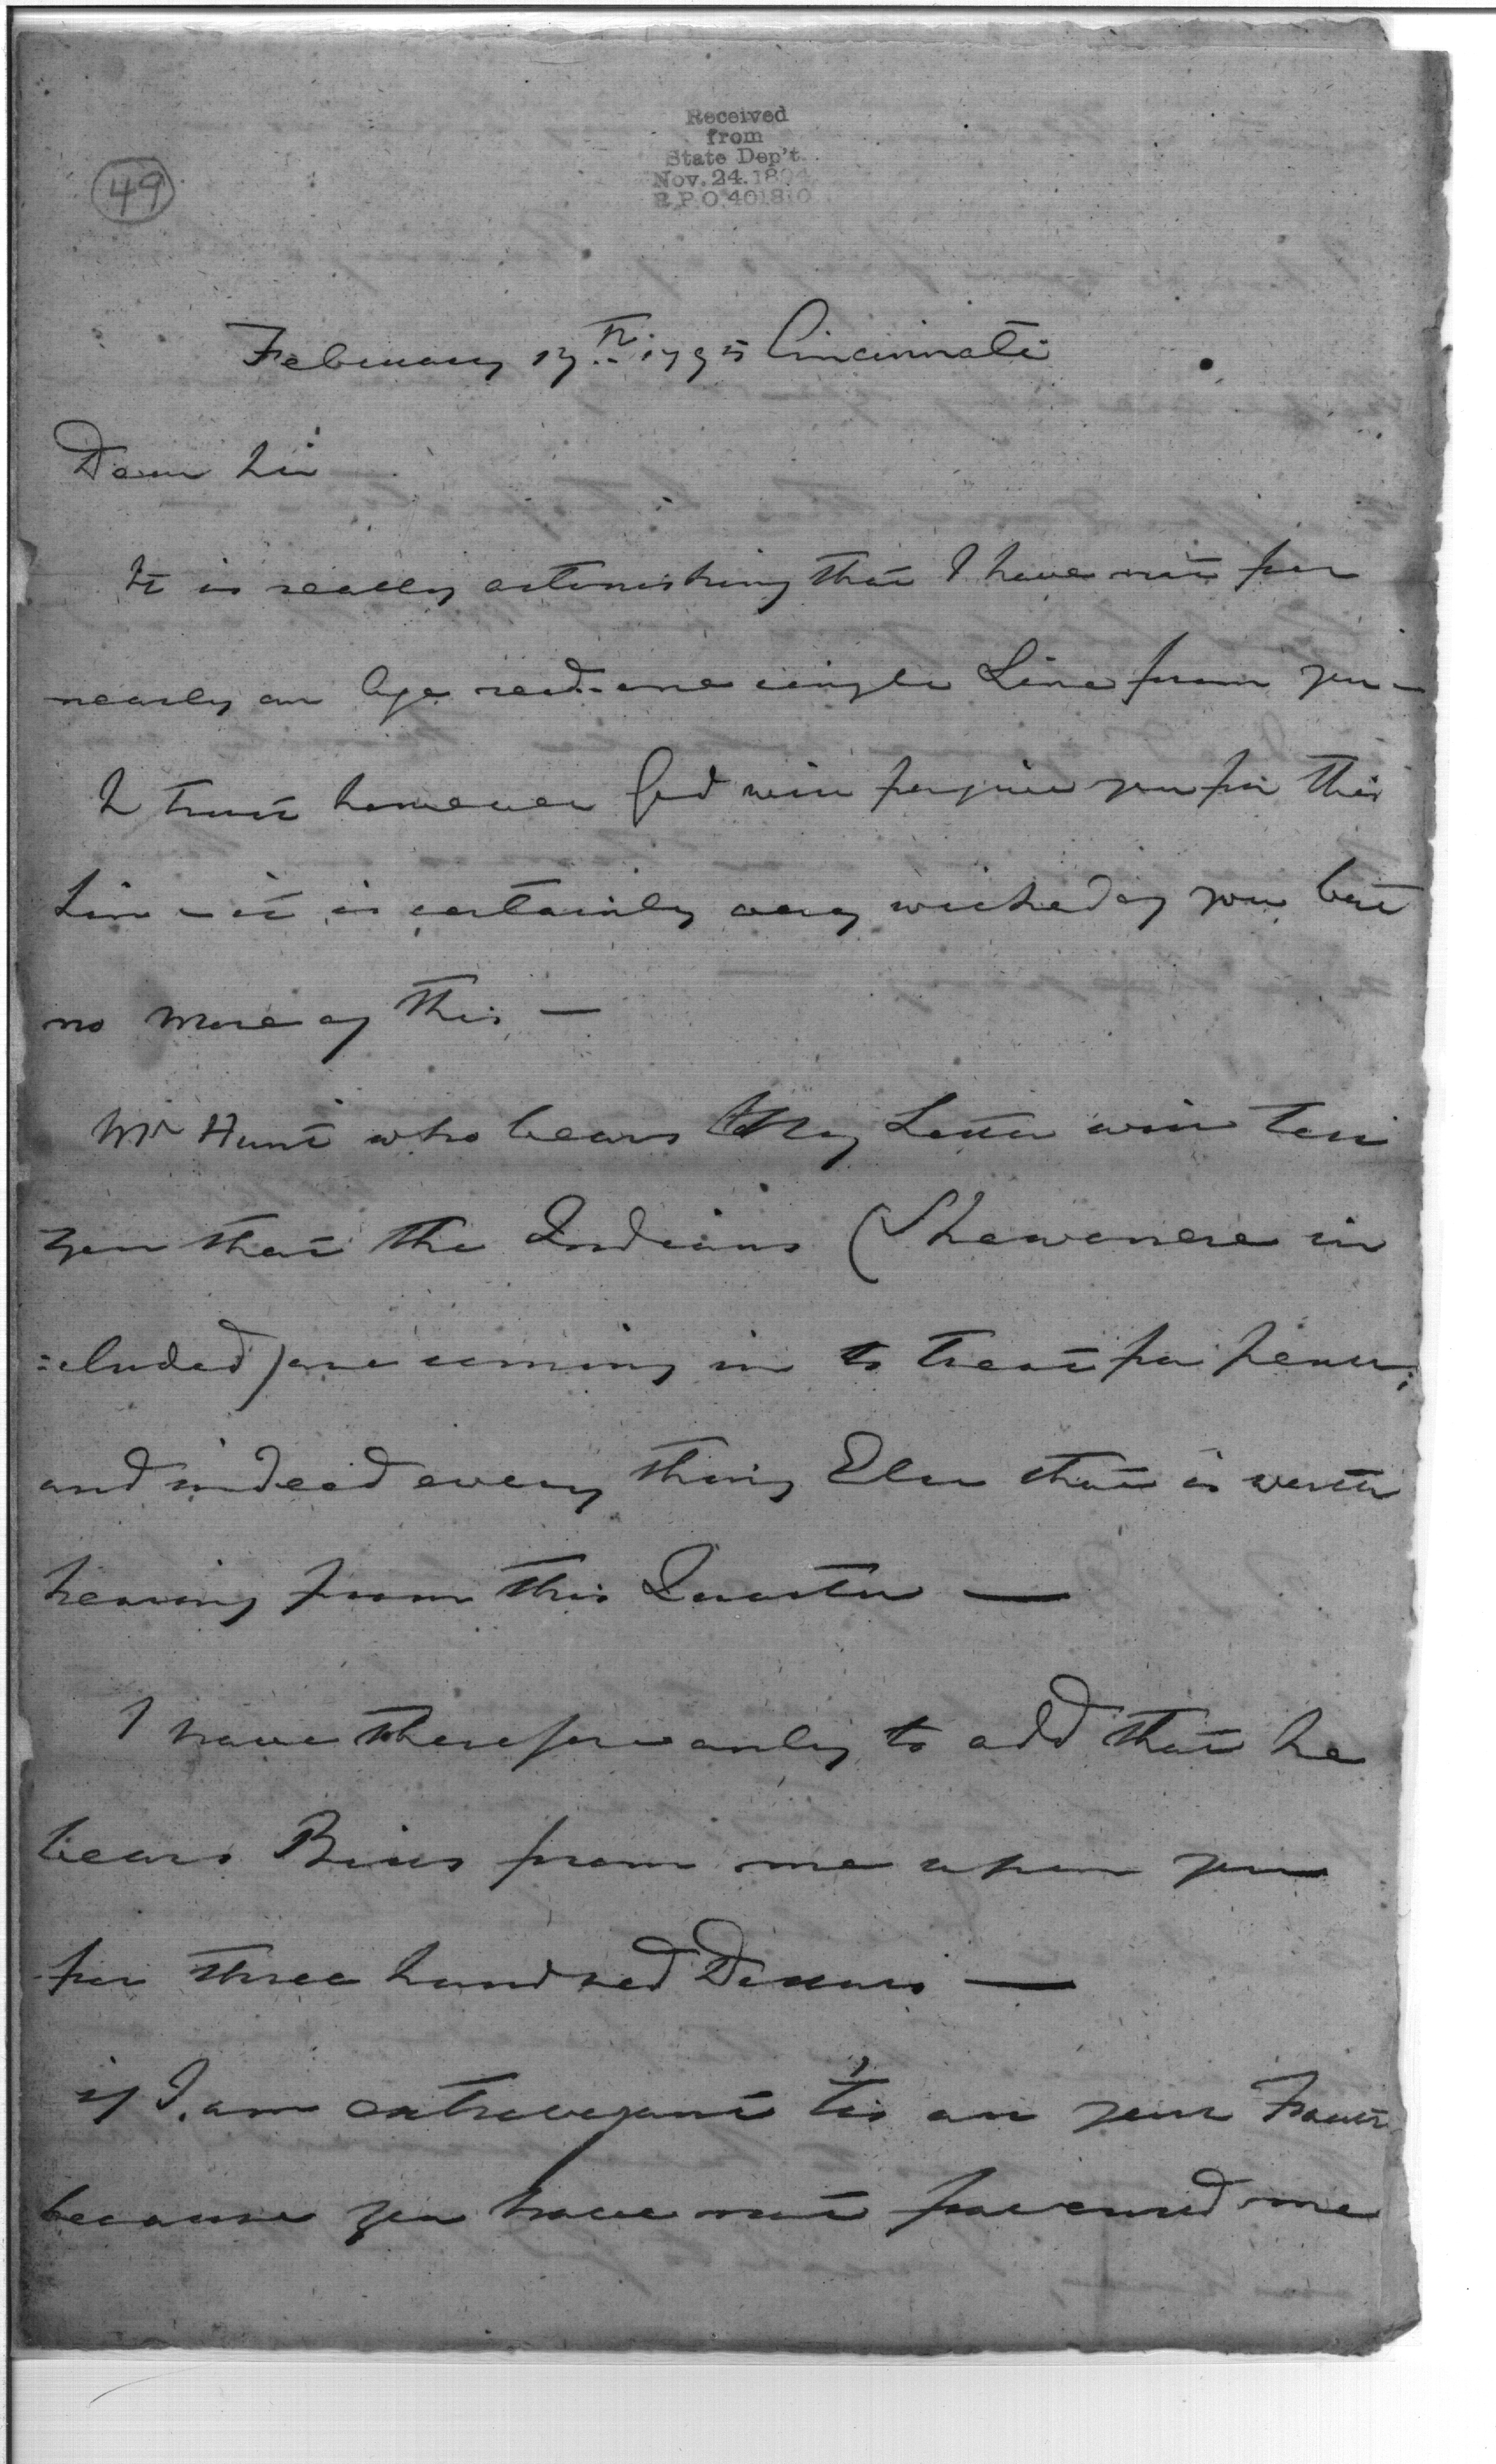 49
Received
from
State Dep't.
Nov. 24. 1894
R.P.O. 401810
February 17th. 1795 Cincinnati
Dear Sir
It is really astonishing that I have not for
nearly an Age recd. one single Line from you –
I trust however God will forgive you for this
Sin – it is certainly very wicked of you but
no more of this —
Mr Hunt who bears my Letter will tell
you that the Indians (Shawanese in
=cluded) are coming in to treat for peace;
and indeed every thing Else that is worth
hearing from this Quarter —
I have therefore only to add that he
bears Bills from me upon you
for three hundred Dollars —
if I am extravagant 'tis all your Fault
because you have not favoured me